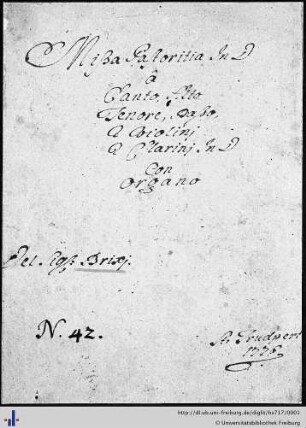 Mißa Pastoritia In D
â
Canto, Alto
Tenore, Baßo,
2 Violinj
2 Clarinj In D
Con
Organo
Del Sigr. Brixj.
N. 42.
St. Trudpert
http://dl.ub.uni-freiburg.de/diglit/hs717/0001
© Universitätsbibliothek Freiburg